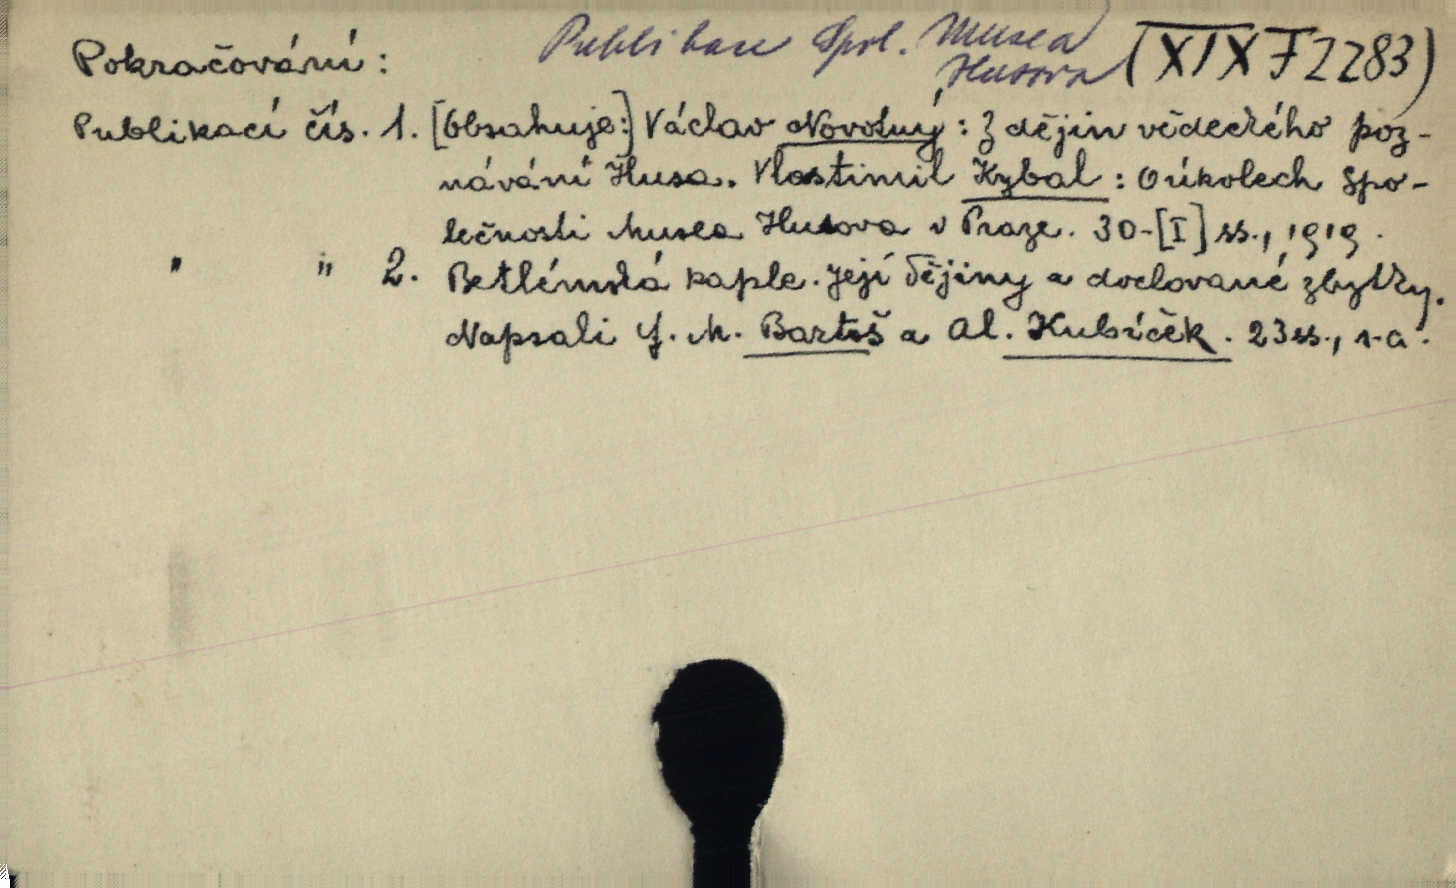 Publikace Spol. Musea
Husova
(XIX F 2283)
Pokračování:
Publikací čís. 1. [Obsahuje:] Václav Novotný: Z dějin vědeckého poz-
návání Husa. Vlastimil Kybal: O úkolech Spo-
lečnosti Musea Husova v Praze. 30-[I] ss., 1919.
" " 2. Betlémská kaple. Její dějiny a dochované zbytky.
Napsali F. M. Bartoš a Al. Kubíček. 23 ss., s.a.